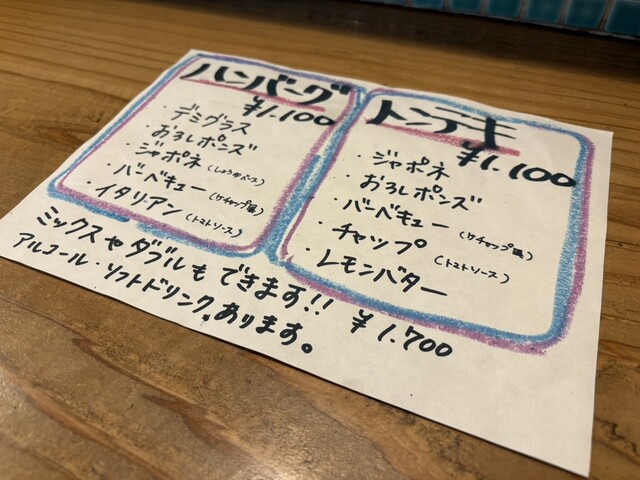 ハンバーグ
¥1.100
・デミグラス
・おろしポンズ
・ジャポネ(しょうゆベース)
・バーベキュー(ケチャップ風)
・イタリアン(トマトソース)
トンテキ
¥1.100
・ジャポネ
・おろしポンズ
・バーベキュー(ケチャップ風)
・チャップ(トマトソース)
・レモンバター
ミックスやダブルもできます!! ¥1.700
アルコール・ソフトドリンク、あります。